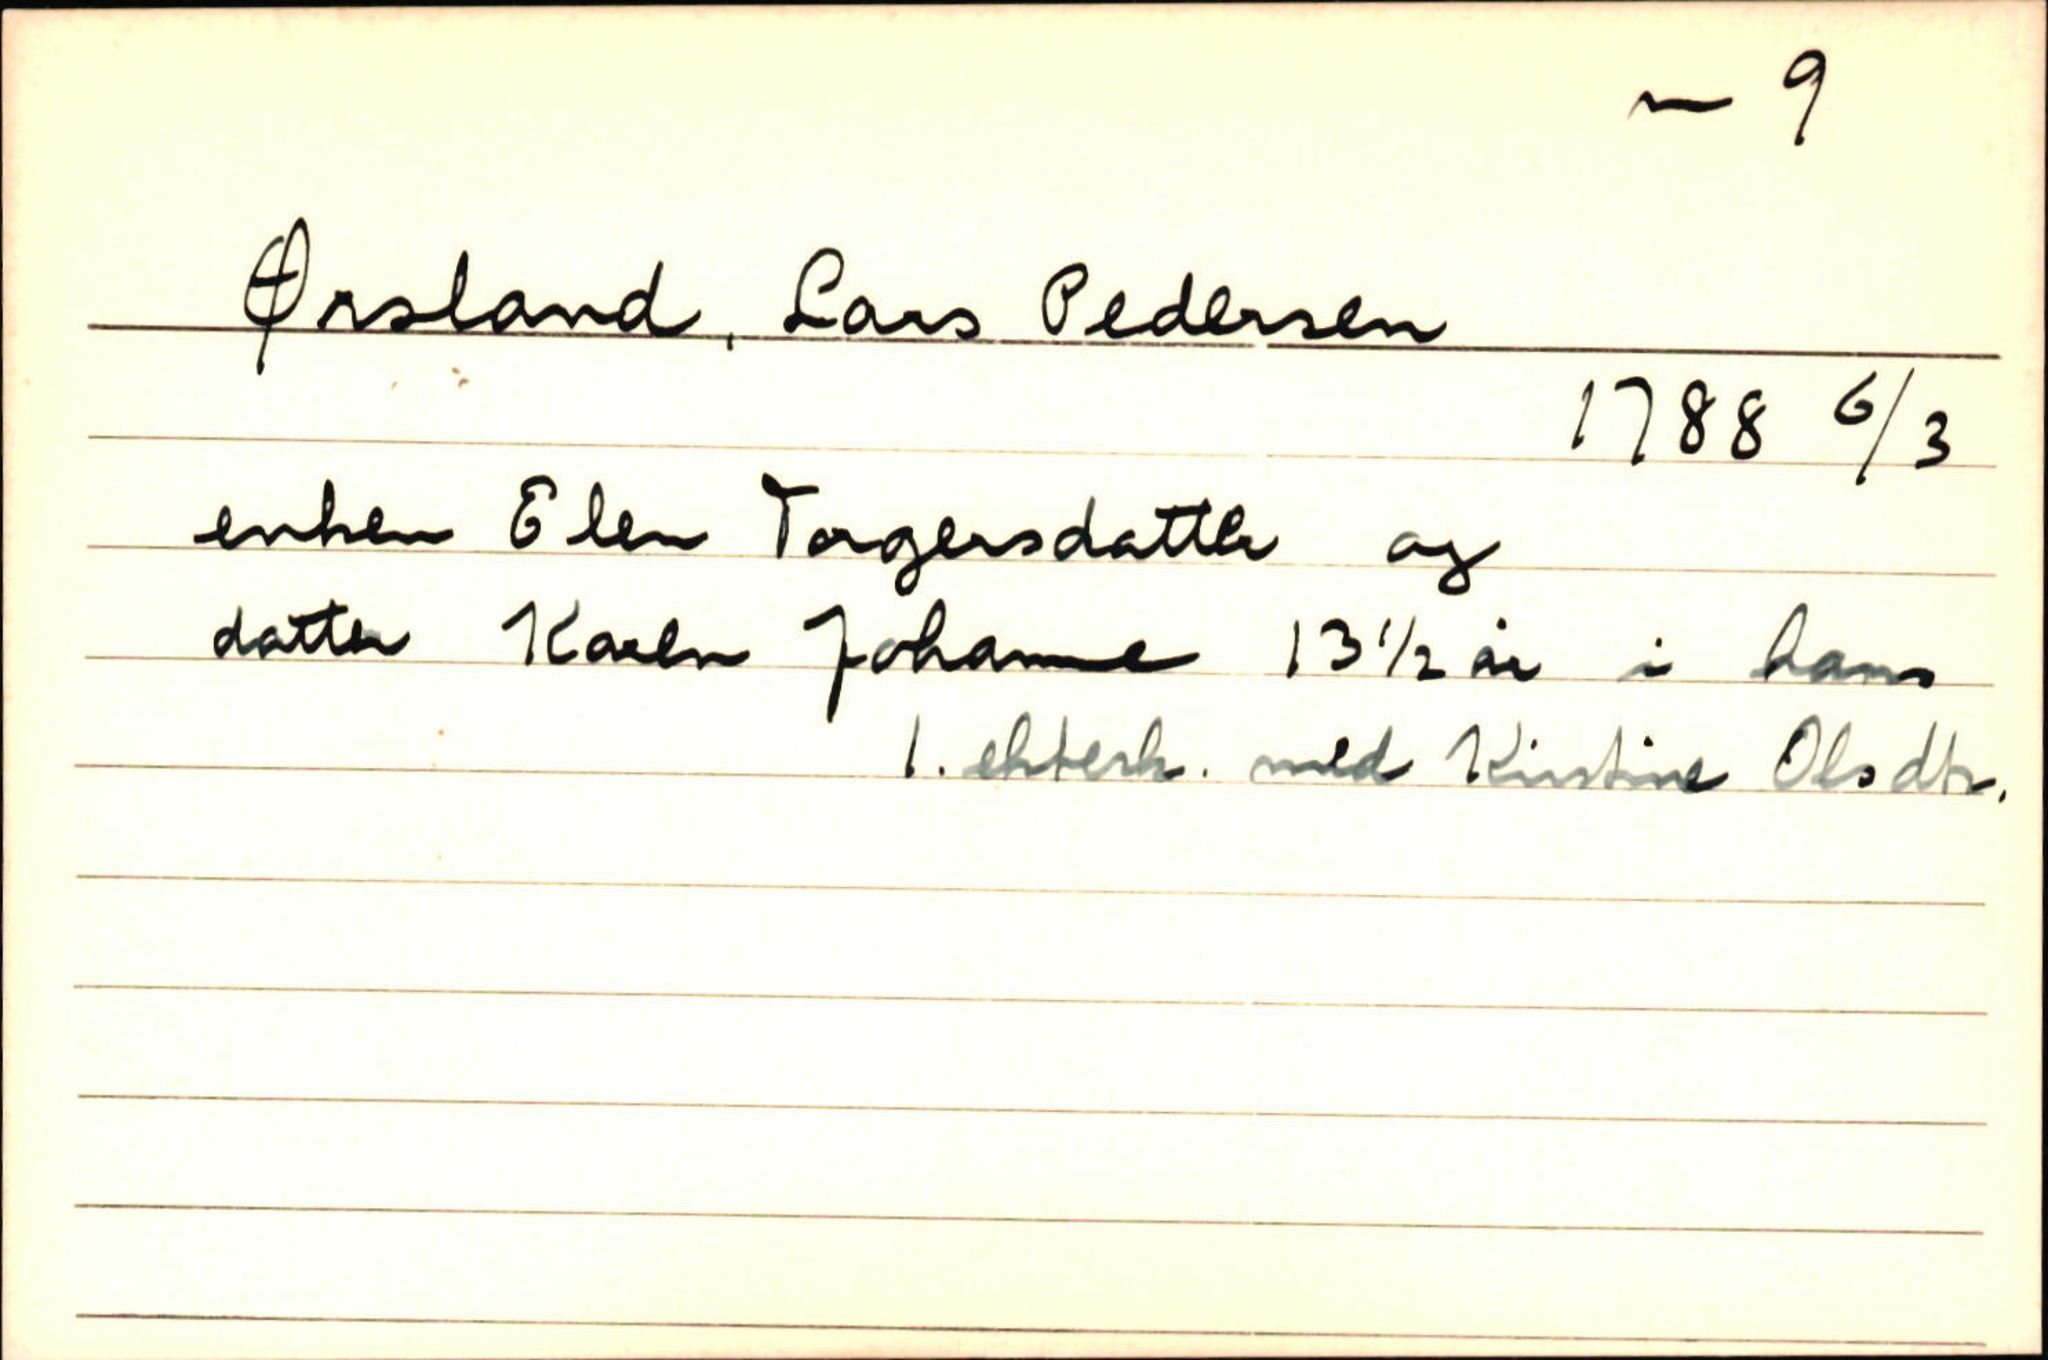 ~ 9
Ørsland, Lars Pedersen
1788 6/3
enken Elen Torgersdatter og
datter Karen Johanne 13 1/2 år i hans
1. ektesk. med Kirstine Olsdtr.